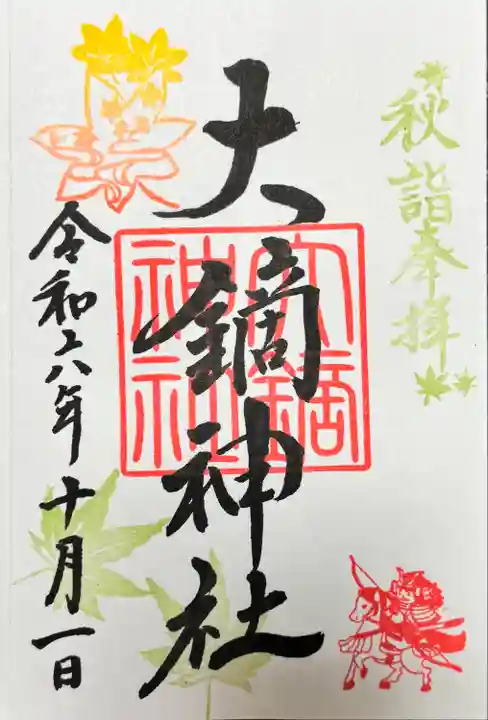 秋詣奉拝
大鏑神社
大鏑
神社
令和六年十月一日